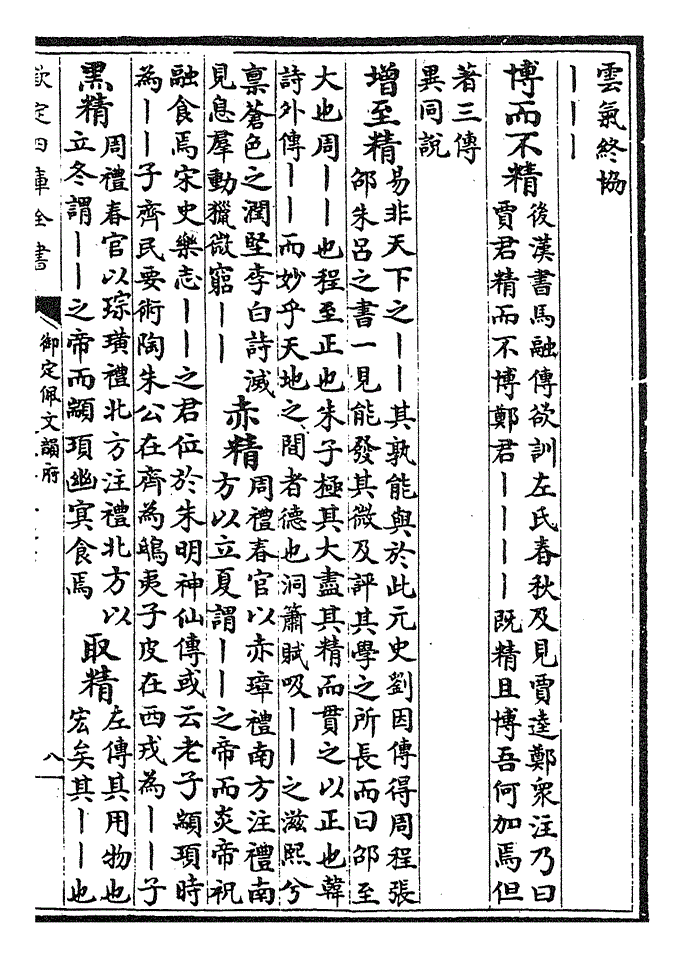 雲氣終協
｜｜｜
博而不精
後漢書馬融傳欲訓左氏春秋及見賈逵鄭衆注乃曰
賈君精而不博鄭君｜｜｜｜既精且博吾何加焉但
著三傳
異同說
增至精
易非天下之｜｜其孰能與於此元史劉因傳得周程張
邵朱呂之書一見能發其微及評其學之所長而曰邵至
大也周｜｜也程至正也朱子極其大盡其精而貫之以正也韓
詩外傳｜｜而妙乎天地之間者德也洞簫賦吸｜｜之滋熙兮
稟蒼色之潤堅李白詩滅
見息羣動獵微窮｜｜
赤精
周禮春官以赤璋禮南方注禮南
方以立夏謂｜｜之帝而炎帝祝
融食焉宋史樂志｜｜之君位於朱明神仙傳或云老子顓頊時
為｜｜子齊民要術陶朱公在齊為鴟夷子皮在西戎為｜｜子
黑精
周禮春官以琮璜禮北方注禮北方以
立冬謂｜｜之帝而顓頊幽㝠食焉
取精
左傳其用物也
宏矣其｜｜也
欽定四庫全書
御定佩文韻府
八